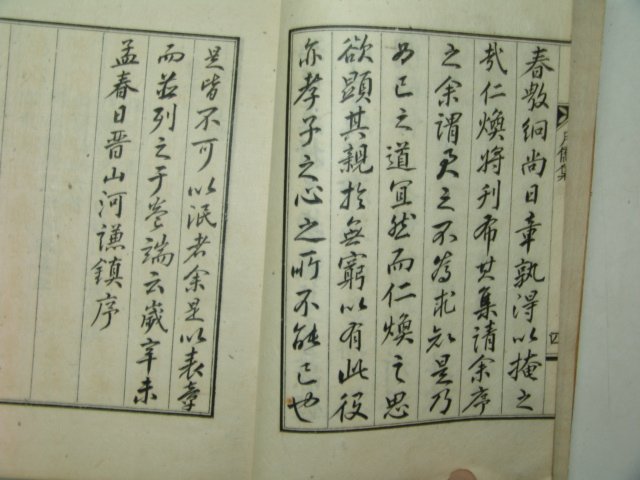 春敷絅尚日章孰得以掩之
哉仁煥將刊布其集請余序
之余謂君之不爲求知是乃
爲已之道宜然而仁煥之思
欲顯其親於無窮以有此役
亦孝子之心之所不能已也
是皆不可以泯者余是以表章
而並列之于卷端云歲辛未
孟春日晋山河謙鎭序
四